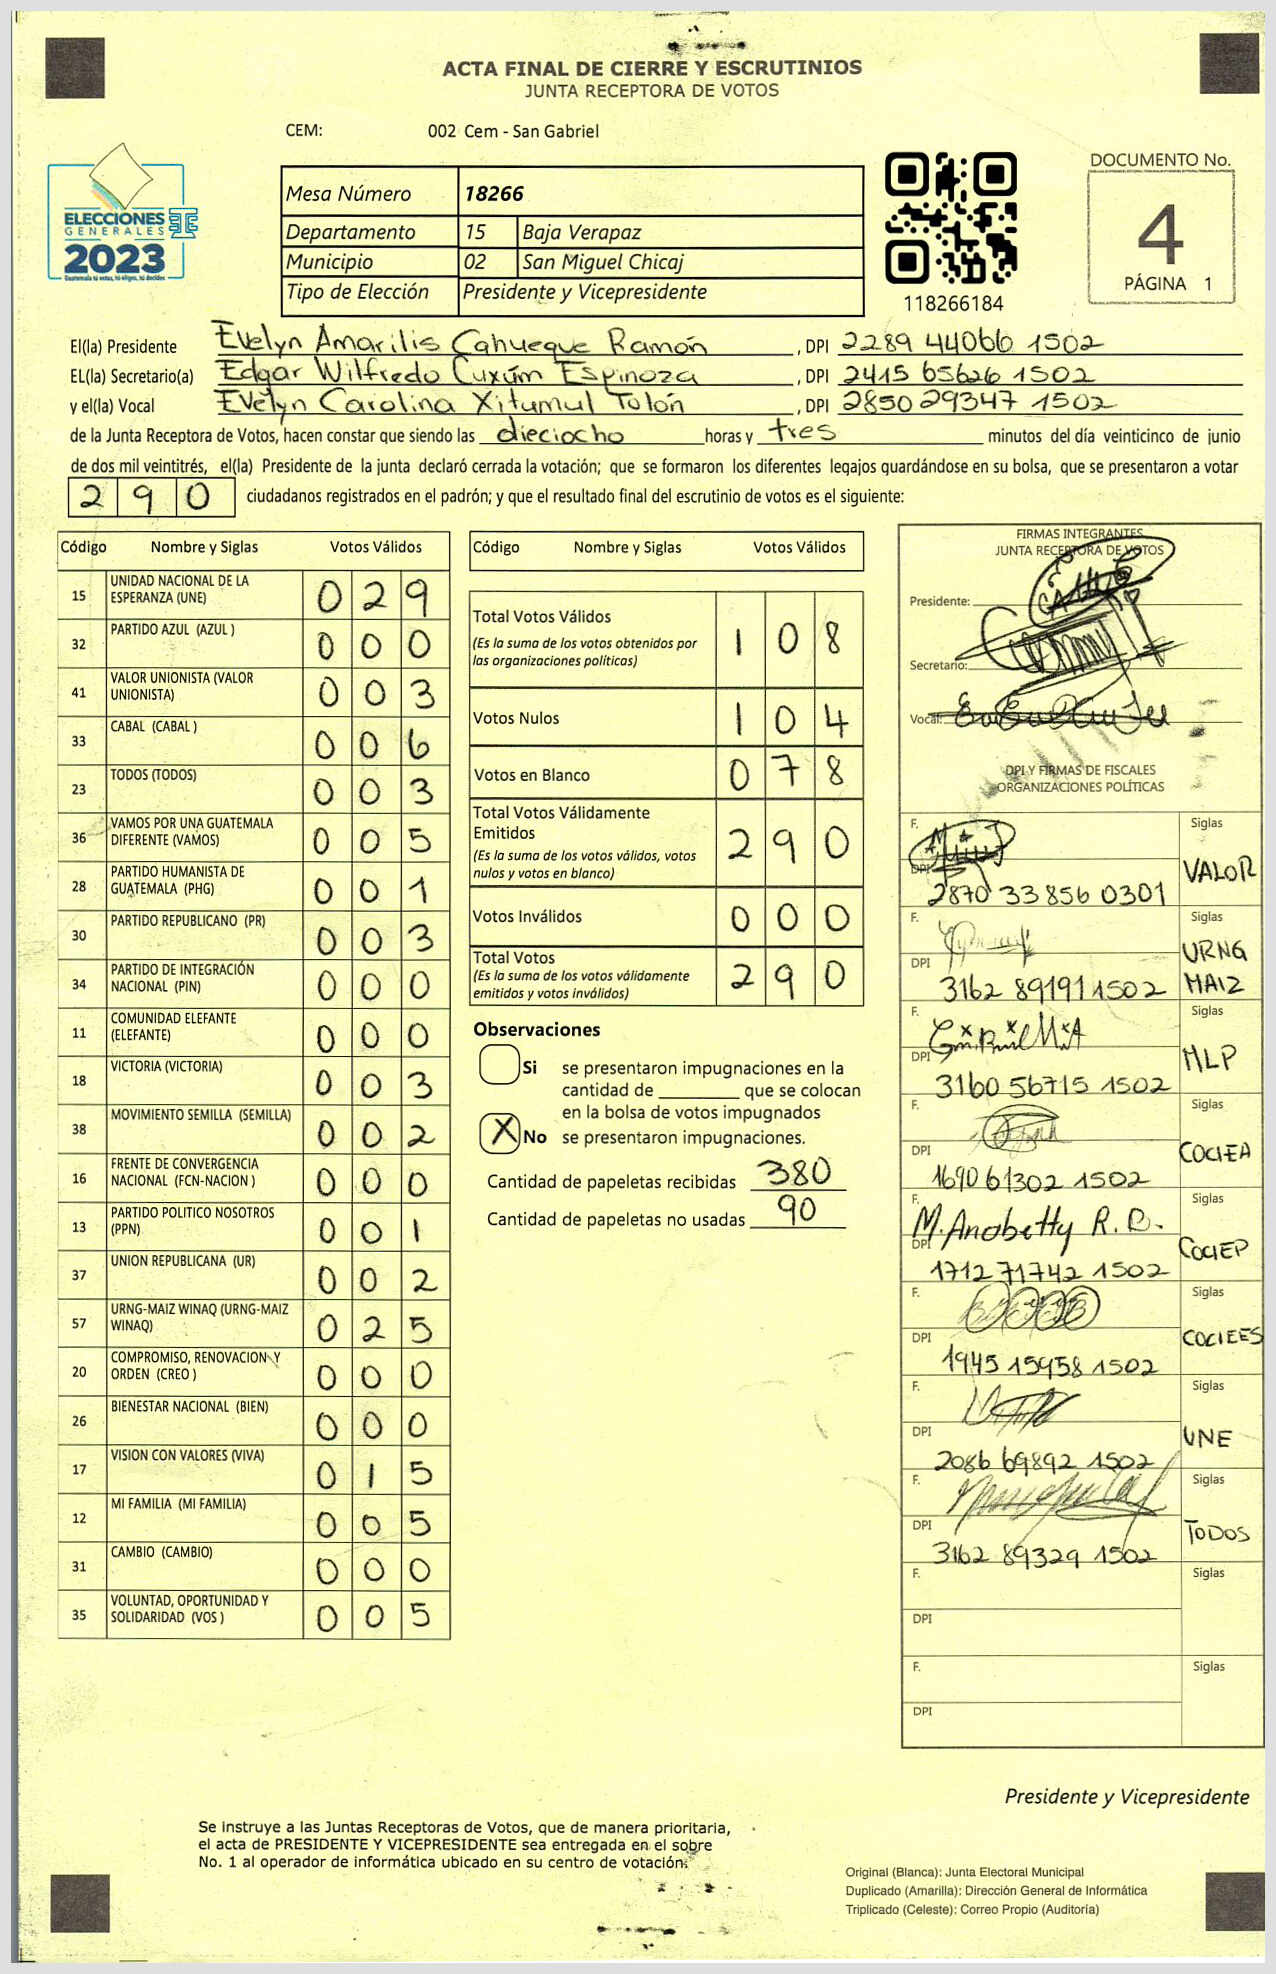 ACTA FINAL DE CIERRE Y ESCRUTINIOS
JUNTA RECEPTORA DE VOTOS
CEM: 002 Cem - San Gabriel
ELECCIONES
GENERALES
2023
Guatemala tú votas, tú eliges, tú decides
Mesa Número 18266
Departamento 15 Baja Verapaz
Municipio 02 San Miguel Chicaj
Tipo de Elección Presidente y Vicepresidente
118266184
DOCUMENTO No.
4
PÁGINA 1
El(la) Presidente Evelyn Amarilis Cahueque Ramón , DPI 2289 44066 1502
EL(la) Secretario(a) Edgar Wilfredo Cuxúm Espinoza , DPI 2415 65626 1502
y el(la) Vocal Evelyn Carolina Xitumul Tolón , DPI 2850 29347 1502
de la Junta Receptora de Votos, hacen constar que siendo las dieciocho horas y tres minutos del día veinticinco de junio
de dos mil veintitrés, el(la) Presidente de la junta declaró cerrada la votación; que se formaron los diferentes legajos guardándose en su bolsa, que se presentaron a votar
290 ciudadanos registrados en el padrón; y que el resultado final del escrutinio de votos es el siguiente:
Código Nombre y Siglas Votos Válidos
15 UNIDAD NACIONAL DE LA ESPERANZA (UNE) 029
32 PARTIDO AZUL (AZUL ) 000
41 VALOR UNIONISTA (VALOR UNIONISTA) 003
33 CABAL (CABAL ) 006
23 TODOS (TODOS) 003
36 VAMOS POR UNA GUATEMALA DIFERENTE (VAMOS) 005
28 PARTIDO HUMANISTA DE GUATEMALA (PHG) 001
30 PARTIDO REPUBLICANO (PR) 003
34 PARTIDO DE INTEGRACIÓN NACIONAL (PIN) 000
11 COMUNIDAD ELEFANTE (ELEFANTE) 000
18 VICTORIA (VICTORIA) 003
38 MOVIMIENTO SEMILLA (SEMILLA) 002
16 FRENTE DE CONVERGENCIA NACIONAL (FCN-NACION ) 000
13 PARTIDO POLITICO NOSOTROS (PPN) 001
37 UNION REPUBLICANA (UR) 002
57 URNG-MAIZ WINAQ (URNG-MAIZ WINAQ) 025
20 COMPROMISO, RENOVACION Y ORDEN (CREO ) 000
26 BIENESTAR NACIONAL (BIEN) 000
17 VISION CON VALORES (VIVA) 015
12 MI FAMILIA (MI FAMILIA) 005
31 CAMBIO (CAMBIO) 000
35 VOLUNTAD, OPORTUNIDAD Y SOLIDARIDAD (VOS ) 005
Código Nombre y Siglas Votos Válidos
Total Votos Válidos 108
(Es la suma de los votos obtenidos por
las organizaciones políticas)
Votos Nulos 104
Votos en Blanco 078
Total Votos Válidamente
Emitidos 290
(Es la suma de los votos válidos, votos
nulos y votos en blanco)
Votos Inválidos 000
Total Votos 290
(Es la suma de los votos válidamente
emitidos y votos inválidos)
Observaciones
Si se presentaron impugnaciones en la
cantidad de ________ que se colocan
en la bolsa de votos impugnados
X No se presentaron impugnaciones.
Cantidad de papeletas recibidas 380
Cantidad de papeletas no usadas 90
FIRMAS INTEGRANTES
JUNTA RECEPTORA DE VOTOS
Presidente:
Secretario:
Vocal:
DPI Y FIRMAS DE FISCALES
ORGANIZACIONES POLÍTICAS
F. Siglas
DPI 2870 33856 0301 VALOR
F. Siglas
DPI 3162 89191 1502 URNG MAIZ
F. Siglas
DPI 3160 56715 1502 MLP
F. Siglas
DPI 1690 61302 1502 COCIEA
F. M. Anabetty R. B. Siglas
DPI 1712 71742 1502 COCIEP
F. Siglas
DPI 1945 15958 1502 COCIEES
F. Siglas
DPI 2086 69892 1502 UNE
F. Siglas
DPI 3162 89329 1502 TODOS
F. Siglas
DPI
F. Siglas
DPI
Presidente y Vicepresidente
Se instruye a las Juntas Receptoras de Votos, que de manera prioritaria,
el acta de PRESIDENTE Y VICEPRESIDENTE sea entregada en el sobre
No. 1 al operador de informática ubicado en su centro de votación.
Original (Blanca): Junta Electoral Municipal
Duplicado (Amarilla): Dirección General de Informática
Triplicado (Celeste): Correo Propio (Auditoría)